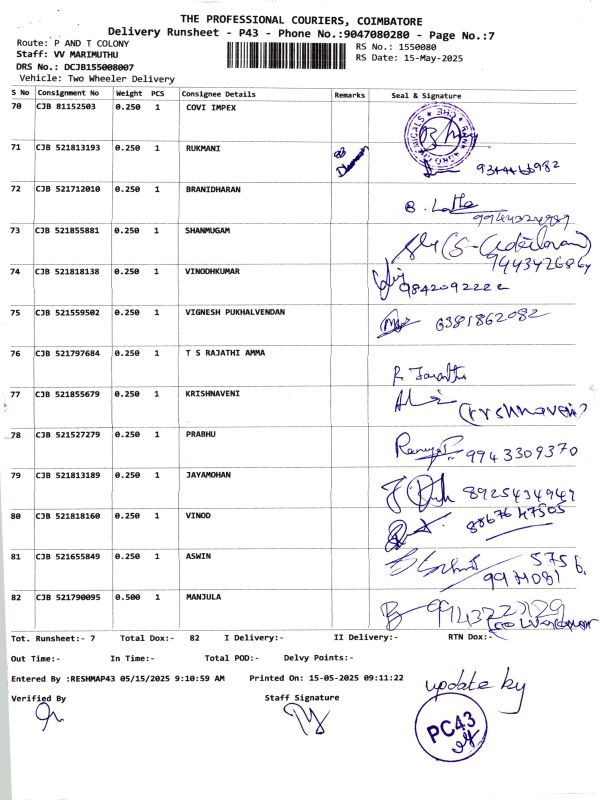 THE PROFESSIONAL COURIERS, COIMBATORE
Delivery Runsheet - P43 - Phone No.:9047080280 - Page No.:7
Route: P AND T COLONY
RS No.: 1550080
Staff: VV MARIMUTHU
RS Date: 15-May-2025
DRS No.: DCJB155008007
Vehicle: Two Wheeler Delivery
S No Consignment No Weight PCS Consignee Details Remarks Seal & Signature
70 CJB 81152503 0.250 1 COVI IMPEX
71 CJB 521813193 0.250 1 RUKMANI
72 CJB 521712010 0.250 1 BRANIDHARAN
73 CJB 521855881 0.250 1 SHANMUGAM
74 CJB 521818138 0.250 1 VINODHKUMAR 9842092222
75 CJB 521559502 0.250 1 VIGNESH PUKHALVENDAN 6381862082
76 CJB 521797684 0.250 1 T S RAJATHI AMMA
77 CJB 521855679 0.250 1 KRISHNAVENI
78 CJB 521527279 0.250 1 PRABHU 9943309370
79 CJB 521813189 0.250 1 JAYAMOHAN
80 CJB 521818160 0.250 1 VINOD
81 CJB 521655849 0.250 1 ASWIN
82 CJB 521790095 0.500 1 MANJULA
Tot. Runsheet:- 7 Total Dox:- 82 I Delivery:- II Delivery:- RTN Dox:-
Out Time:- In Time:- Total POD:- Delvy Points:-
Entered By :RESHMAP43 05/15/2025 9:10:59 AM Printed On: 15-05-2025 09:11:22
Verified By Staff Signature
update by
PC43